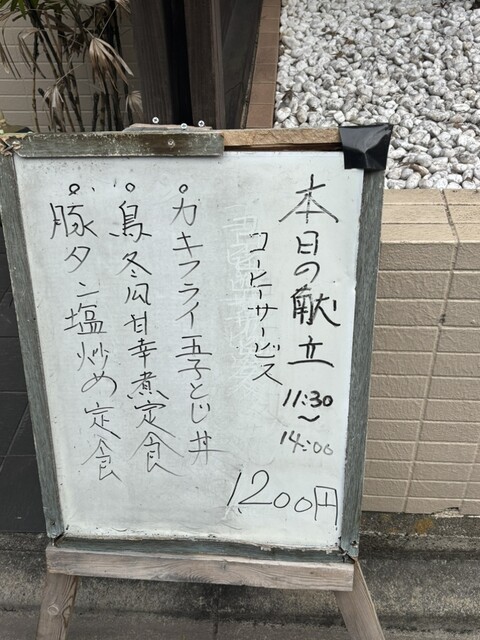 本日の献立
11:30
～
14:00
コーヒーサービス
。カキフライ玉子とじ丼
。鳥冬瓜甘辛煮定食
。豚タン塩炒め定食
1,200円